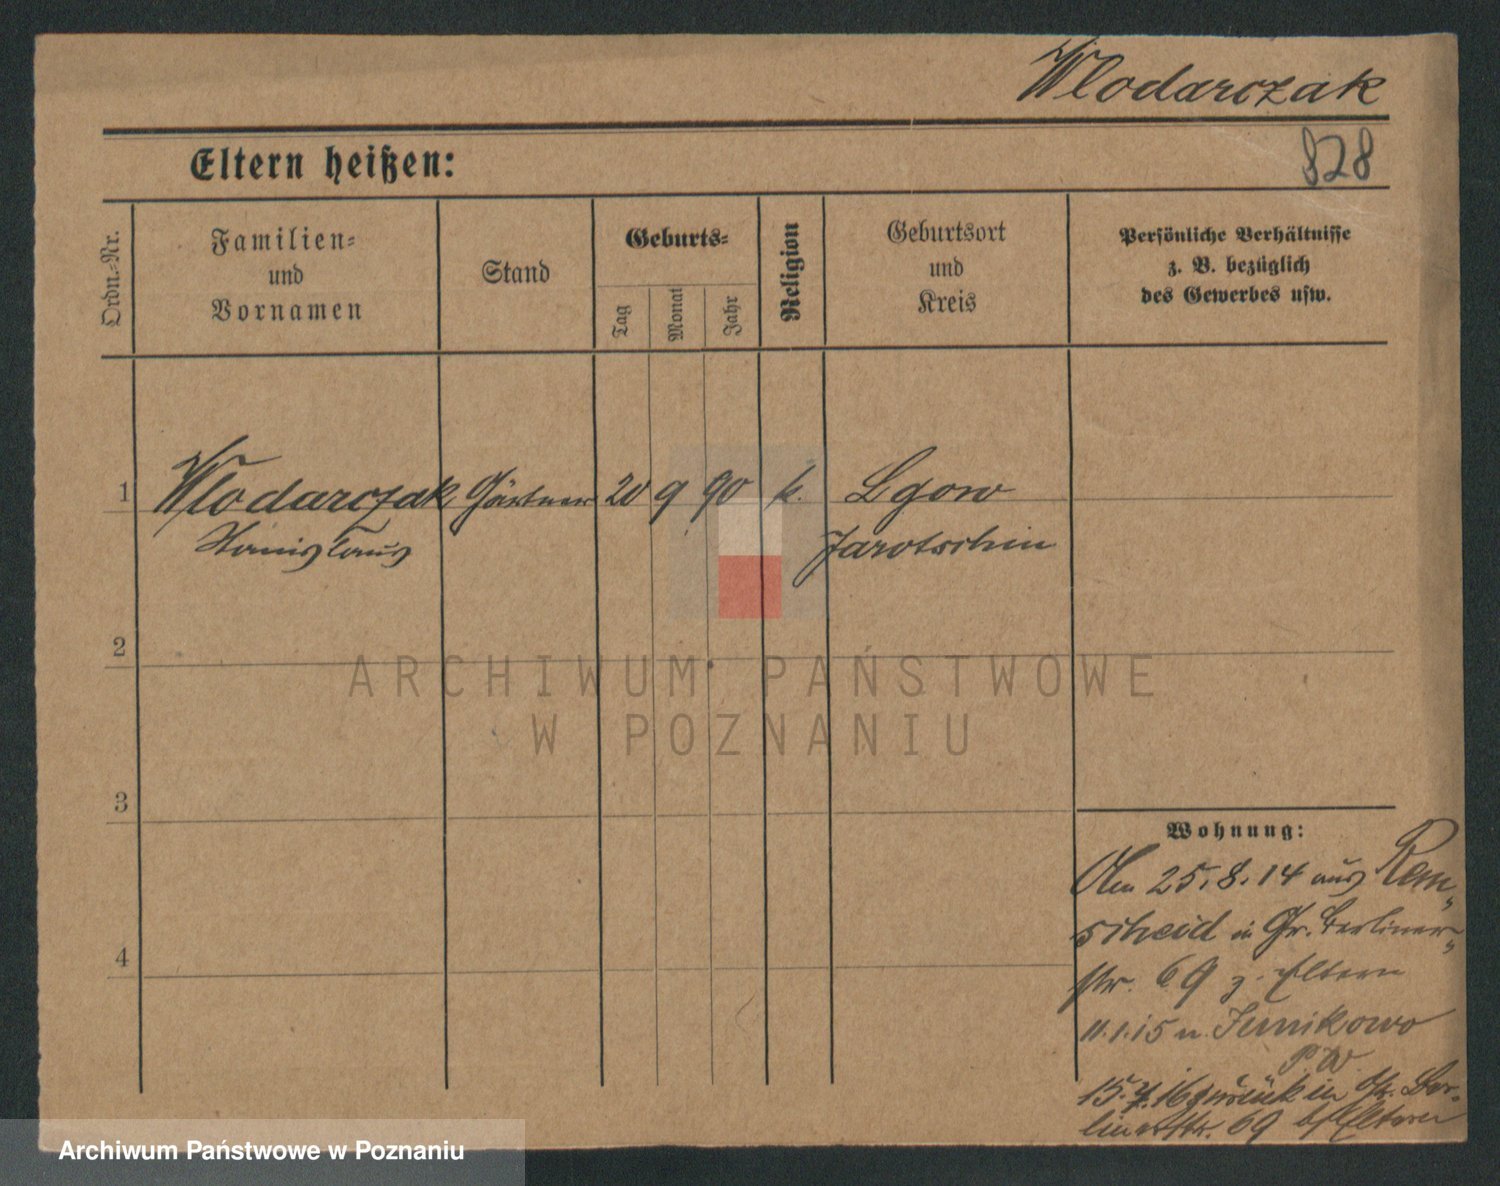 Wlodarczak
828
Eltern heißen:
Ordn.-Nr.
Familien-
und
Vornamen
Stand
Geburts-
Tag
Monat
Jahr
Religion
Geburtsort
und
Kreis
Persönliche Verhältnisse
z. B. bezüglich
des Gewerbes usw.
1 Wlodarczak Gärtner 20 9 90 k. Lgow
Stanislaus Jarotschin
2
3
4
Wohnung:
Am 25.8.14 aus Rem-
scheid in Gr. Berliner-
str. 69 z. Eltern
11.1.15 n. Junikowo
P W
15.7.16 zurück in Gr. Ber-
linerstr. 69 b/Eltern
ARCHIWUM PAŃSTWOWE
W POZNANIU
Archiwum Państwowe w Poznaniu